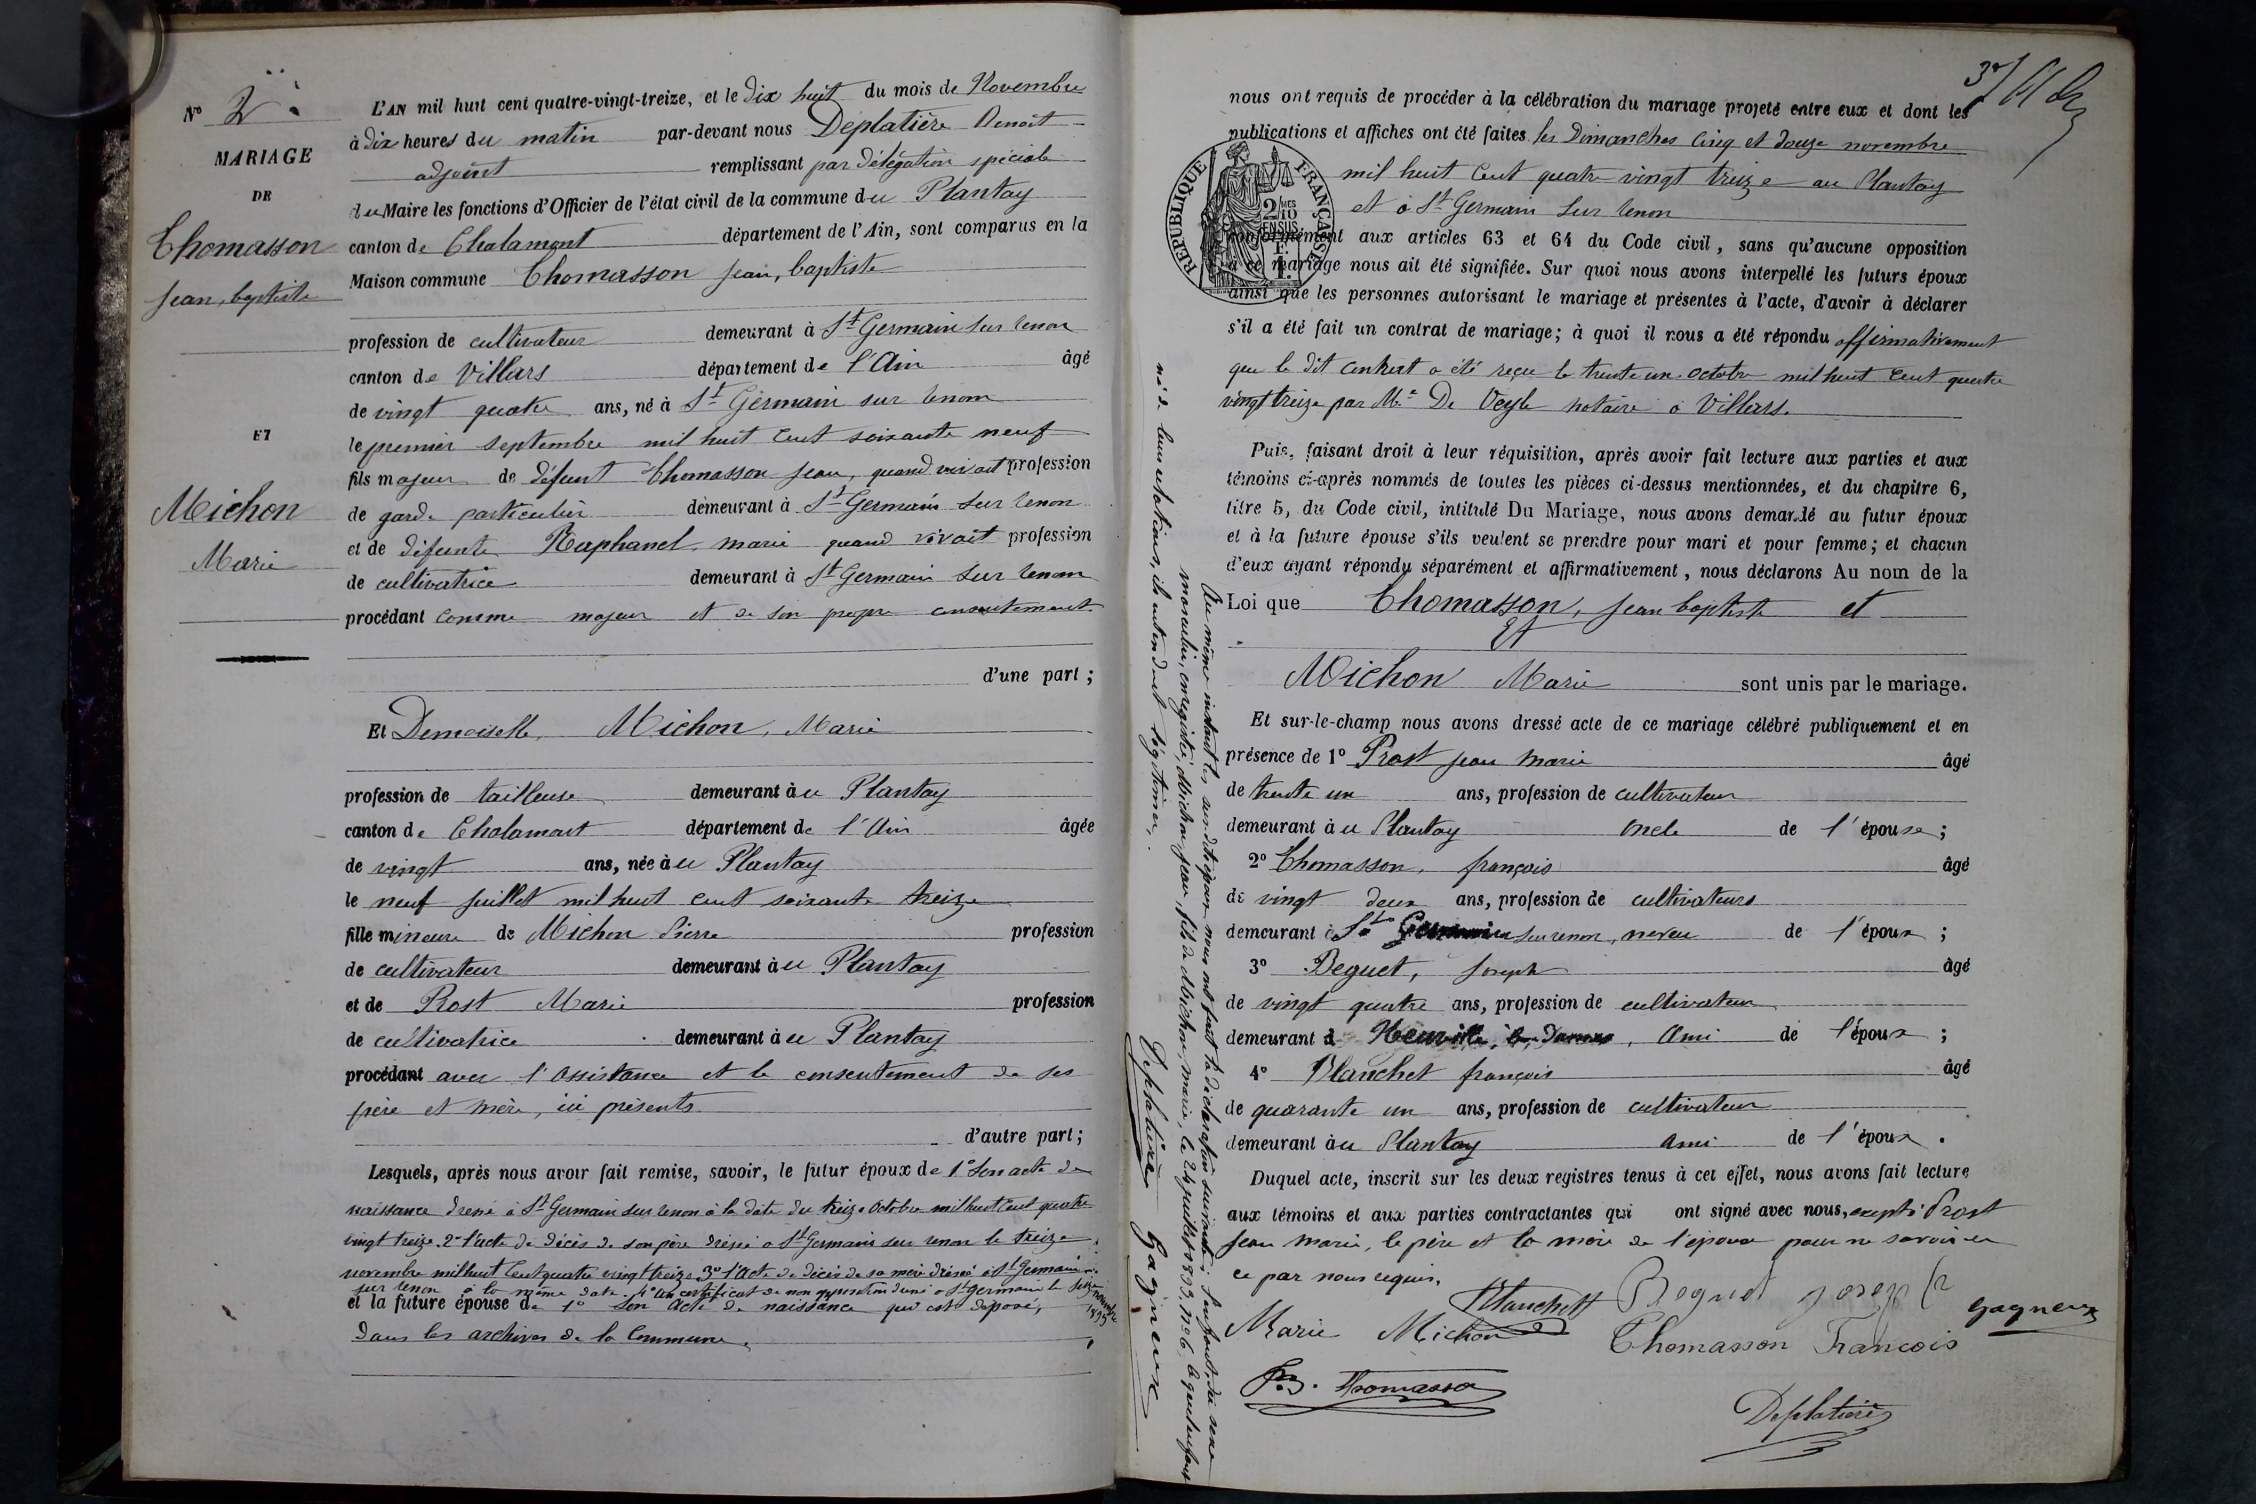 N° 2
MARIAGE
DE
Thomasson
Jean, baptiste
ET
Michon
Marie
L'AN mil huit cent quatre-vingt-treize, et le dix huit du mois de Novembre
à dix heures du matin par-devant nous Déplatière Benoît
adjoint remplissant par délégation spéciale
du Maire les fonctions d'Officier de l'état civil de la commune du Plantay
canton de Chalamont département de l'Ain, sont comparus en la
Maison commune Thomasson Jean, baptiste
profession de cultivateur demeurant à St Germain sur renon
canton de Villars département de l'Ain âgé
de vingt quatre ans, né à St Germain sur renon
le premier septembre mil huit cent soixante neuf
fils majeur de défunt Thomasson Jean, quand vivait profession
de garde particulier demeurant à St Germain sur renon
et de défunte Raphanel Marie quand vivait profession
de cultivatrice demeurant à St Germain sur renon
procédant comme majeur et de son propre consentement
d'une part ;
Et Demoiselle, Michon, Marie
profession de tailleuse demeurant au Plantay
canton de Chalamont département de l'Ain âgée
de vingt ans, née au Plantay
le neuf juillet mil huit cent soixante treize
fille mineure de Michon Pierre profession
de cultivateur demeurant au Plantay
et de Prost Marie profession
de cultivatrice demeurant au Plantay
procédant avec l'assistance et le consentement de ses
père et mère, ici présents
d'autre part ;
Lesquels, après nous avoir fait remise, savoir, le futur époux de 1° son acte de
naissance dressé à St Germain sur renon à la date du treize octobre mil huit cent quatre
vingt treize. 2° l'acte de décès de son père dressé à St Germain sur renon le treize
novembre mil huit cent quatre vingt treize 3° l'acte de décès de sa mère dressé à St Germain
sur renon à la même date. 4° un certificat de non opposition dressé à St Germain le seize novembre 1893
et la future épouse de 1° son acte de naissance qui est déposé,
dans les archives de la commune.
nous ont requis de procéder à la célébration du mariage projeté entre eux et dont les
publications et affiches ont été faites les Dimanches cinq et douze novembre
mil huit cent quatre vingt treize au Plantay
et à St Germain sur renon
RÉPUBLIQUE FRANÇAISE
2/10 EN SUS
conformément aux articles 63 et 64 du Code civil, sans qu'aucune opposition
à ce mariage nous ait été signifiée. Sur quoi nous avons interpellé les futurs époux
ainsi que les personnes autorisant le mariage et présentes à l'acte, d'avoir à déclarer
s'il a été fait un contrat de mariage ; à quoi il nous a été répondu affirmativement
que le dit contrat a été reçu le trente un octobre mil huit cent quatre
vingt treize par Me De Veyle notaire à Villars.
Puis, faisant droit à leur réquisition, après avoir fait lecture aux parties et aux
témoins ci-après nommés de toutes les pièces ci-dessus mentionnées, et du chapitre 6,
titre 5, du Code civil, intitulé Du Mariage, nous avons demandé au futur époux
et à la future épouse s'ils veulent se prendre pour mari et pour femme ; et chacun
d'eux ayant répondu séparément et affirmativement, nous déclarons Au nom de la
Loi que Thomasson, Jean baptiste et
Et
Michon Marie sont unis par le mariage.
Et sur-le-champ nous avons dressé acte de ce mariage célébré publiquement et en
présence de 1° Prost Jean Marie âgé
de trente un ans, profession de cultivateur
demeurant au Plantay oncle de l'épouse ;
2° Thomasson, françois âgé
de vingt deux ans, profession de cultivateurs
demeurant à St Germain sur renon, neveu de l'époux ;
3° Beguet, Joseph âgé
de vingt quatre ans, profession de cultivateur
demeurant à Neuville les Dames, Ami de l'époux ;
4° Blanchet françois âgé
de quarante un ans, profession de cultivateur
demeurant au Plantay ami de l'époux.
Duquel acte, inscrit sur les deux registres tenus à cet effet, nous avons fait lecture
aux témoins et aux parties contractantes qui ont signé avec nous, excepté Prost
Jean Marie, le père et la mère de l'épouse pour ne savoir
ce par nous requis.
Blanchet Beguet Joseph Gagneux
Marie Michon Thomasson François
Thomasson
Deplatière
Au même instant les susdits époux nous ont fait la déclaration suivante : un enfant du sexe
masculin, enregistré, Michon Jean, fils de Michon Marie, le 24 juillet 1893, n° 6
né de leurs relations, ils entendent légitimer.
Deplatière Gagneux